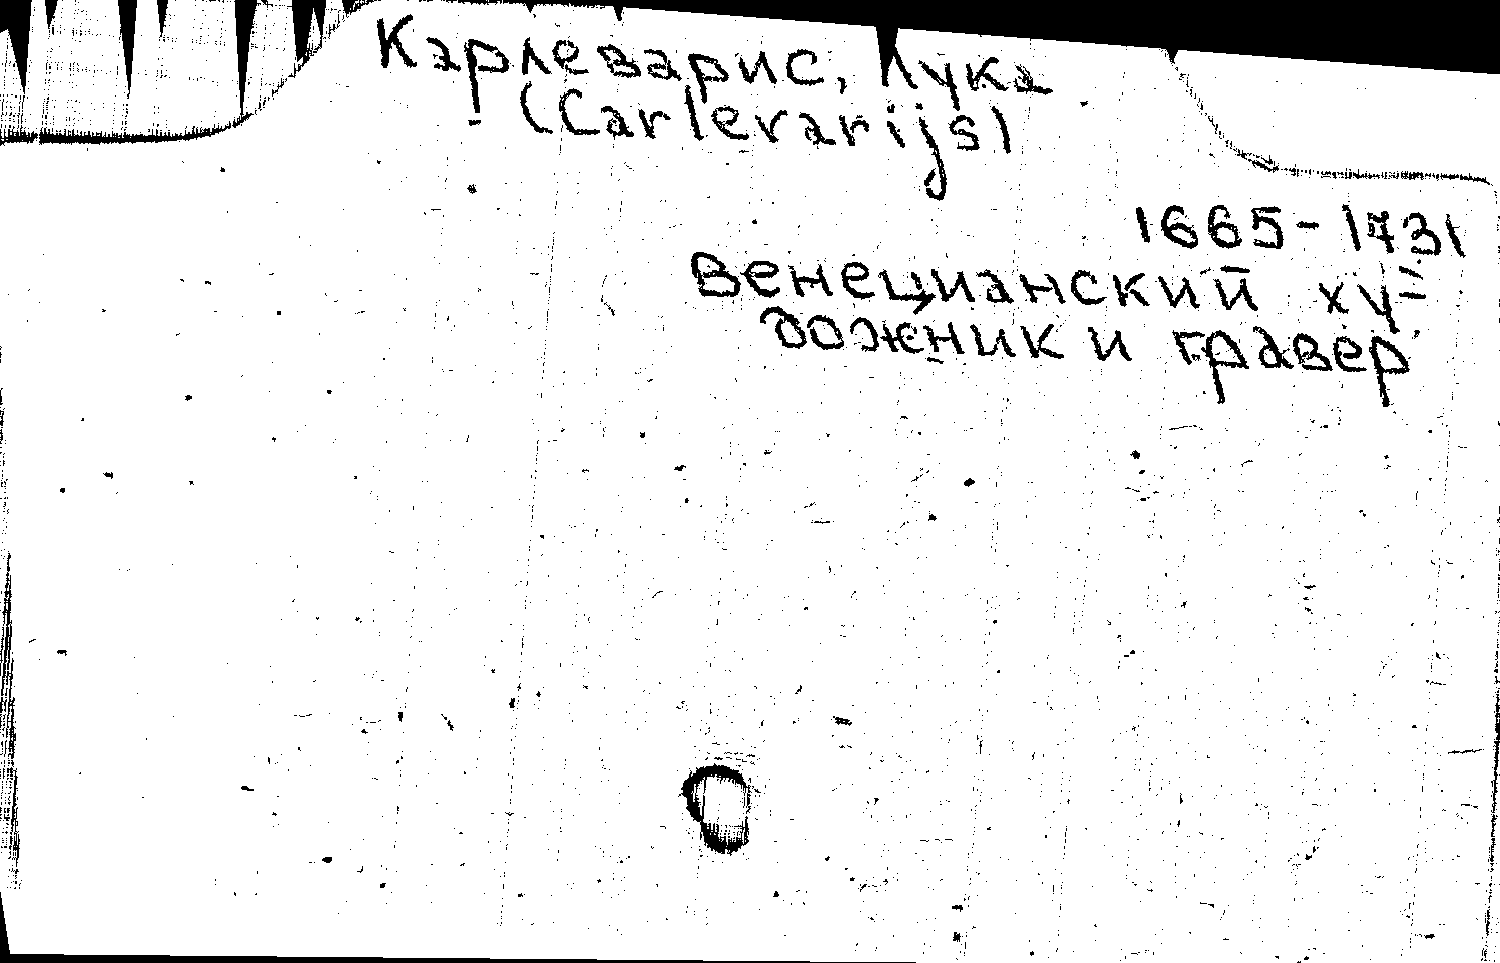 Карлеварис, Лука
(Carlevarijs)
1665-1731
Венецианский ху-
дожник и гравер